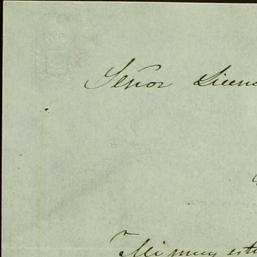 Señor Licen
Mi muy esti